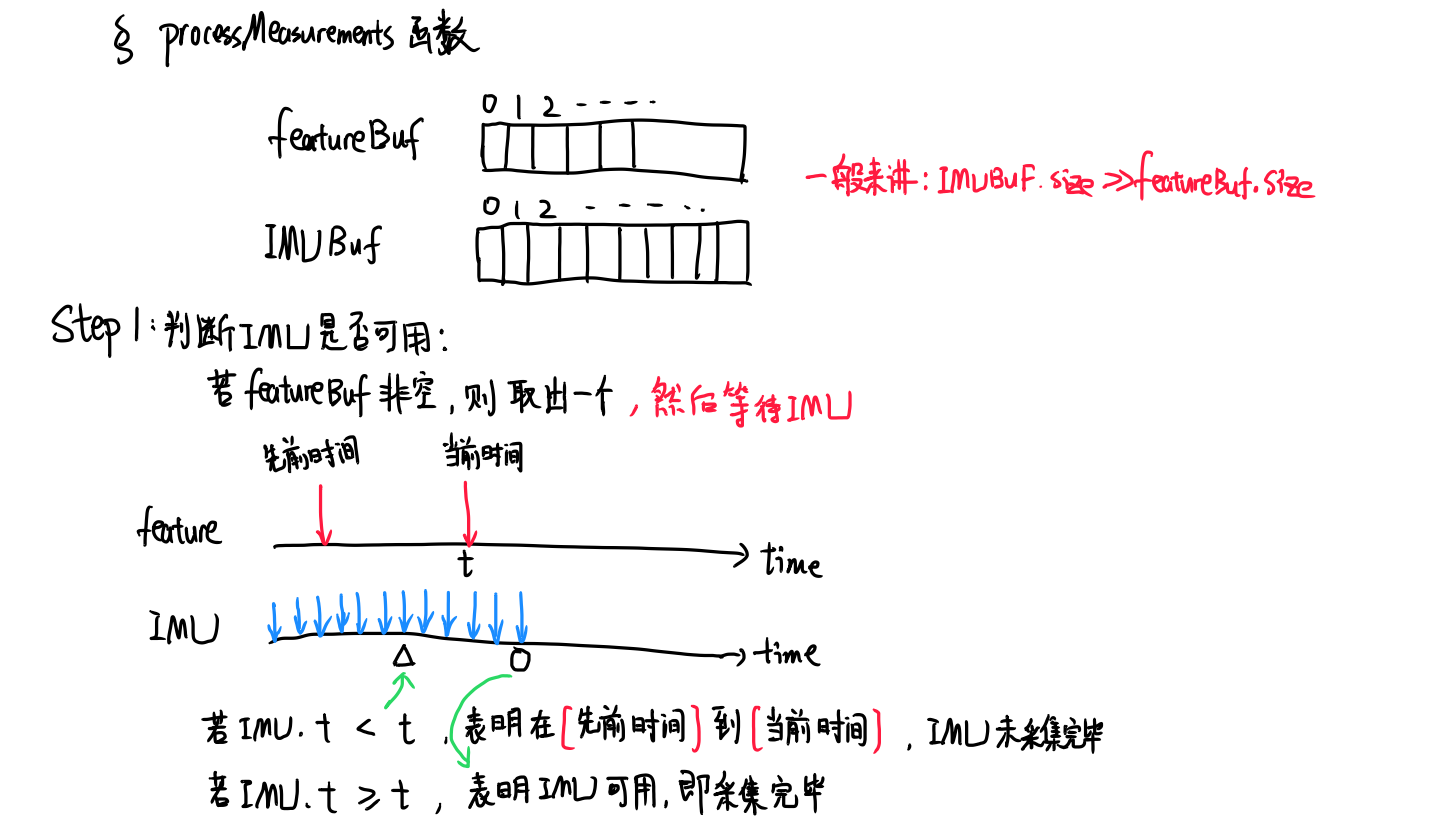 § processMeasurements 函数
0 1 2 - - - - -
featureBuf
一般来讲：IMUBuf.size >> featureBuf.size
0 1 2 - - - - - -
IMUBuf
Step 1：判断IMU是否可用：
若 featureBuf 非空，则 取出一个，然后等待IMU
先前时间 当前时间
feature
t
time
IMU
time
Δ O
若 IMU.t < t，表明在[先前时间]到[当前时间]，IMU未采集完毕
若 IMU.t ≥ t，表明IMU可用，即采集完毕